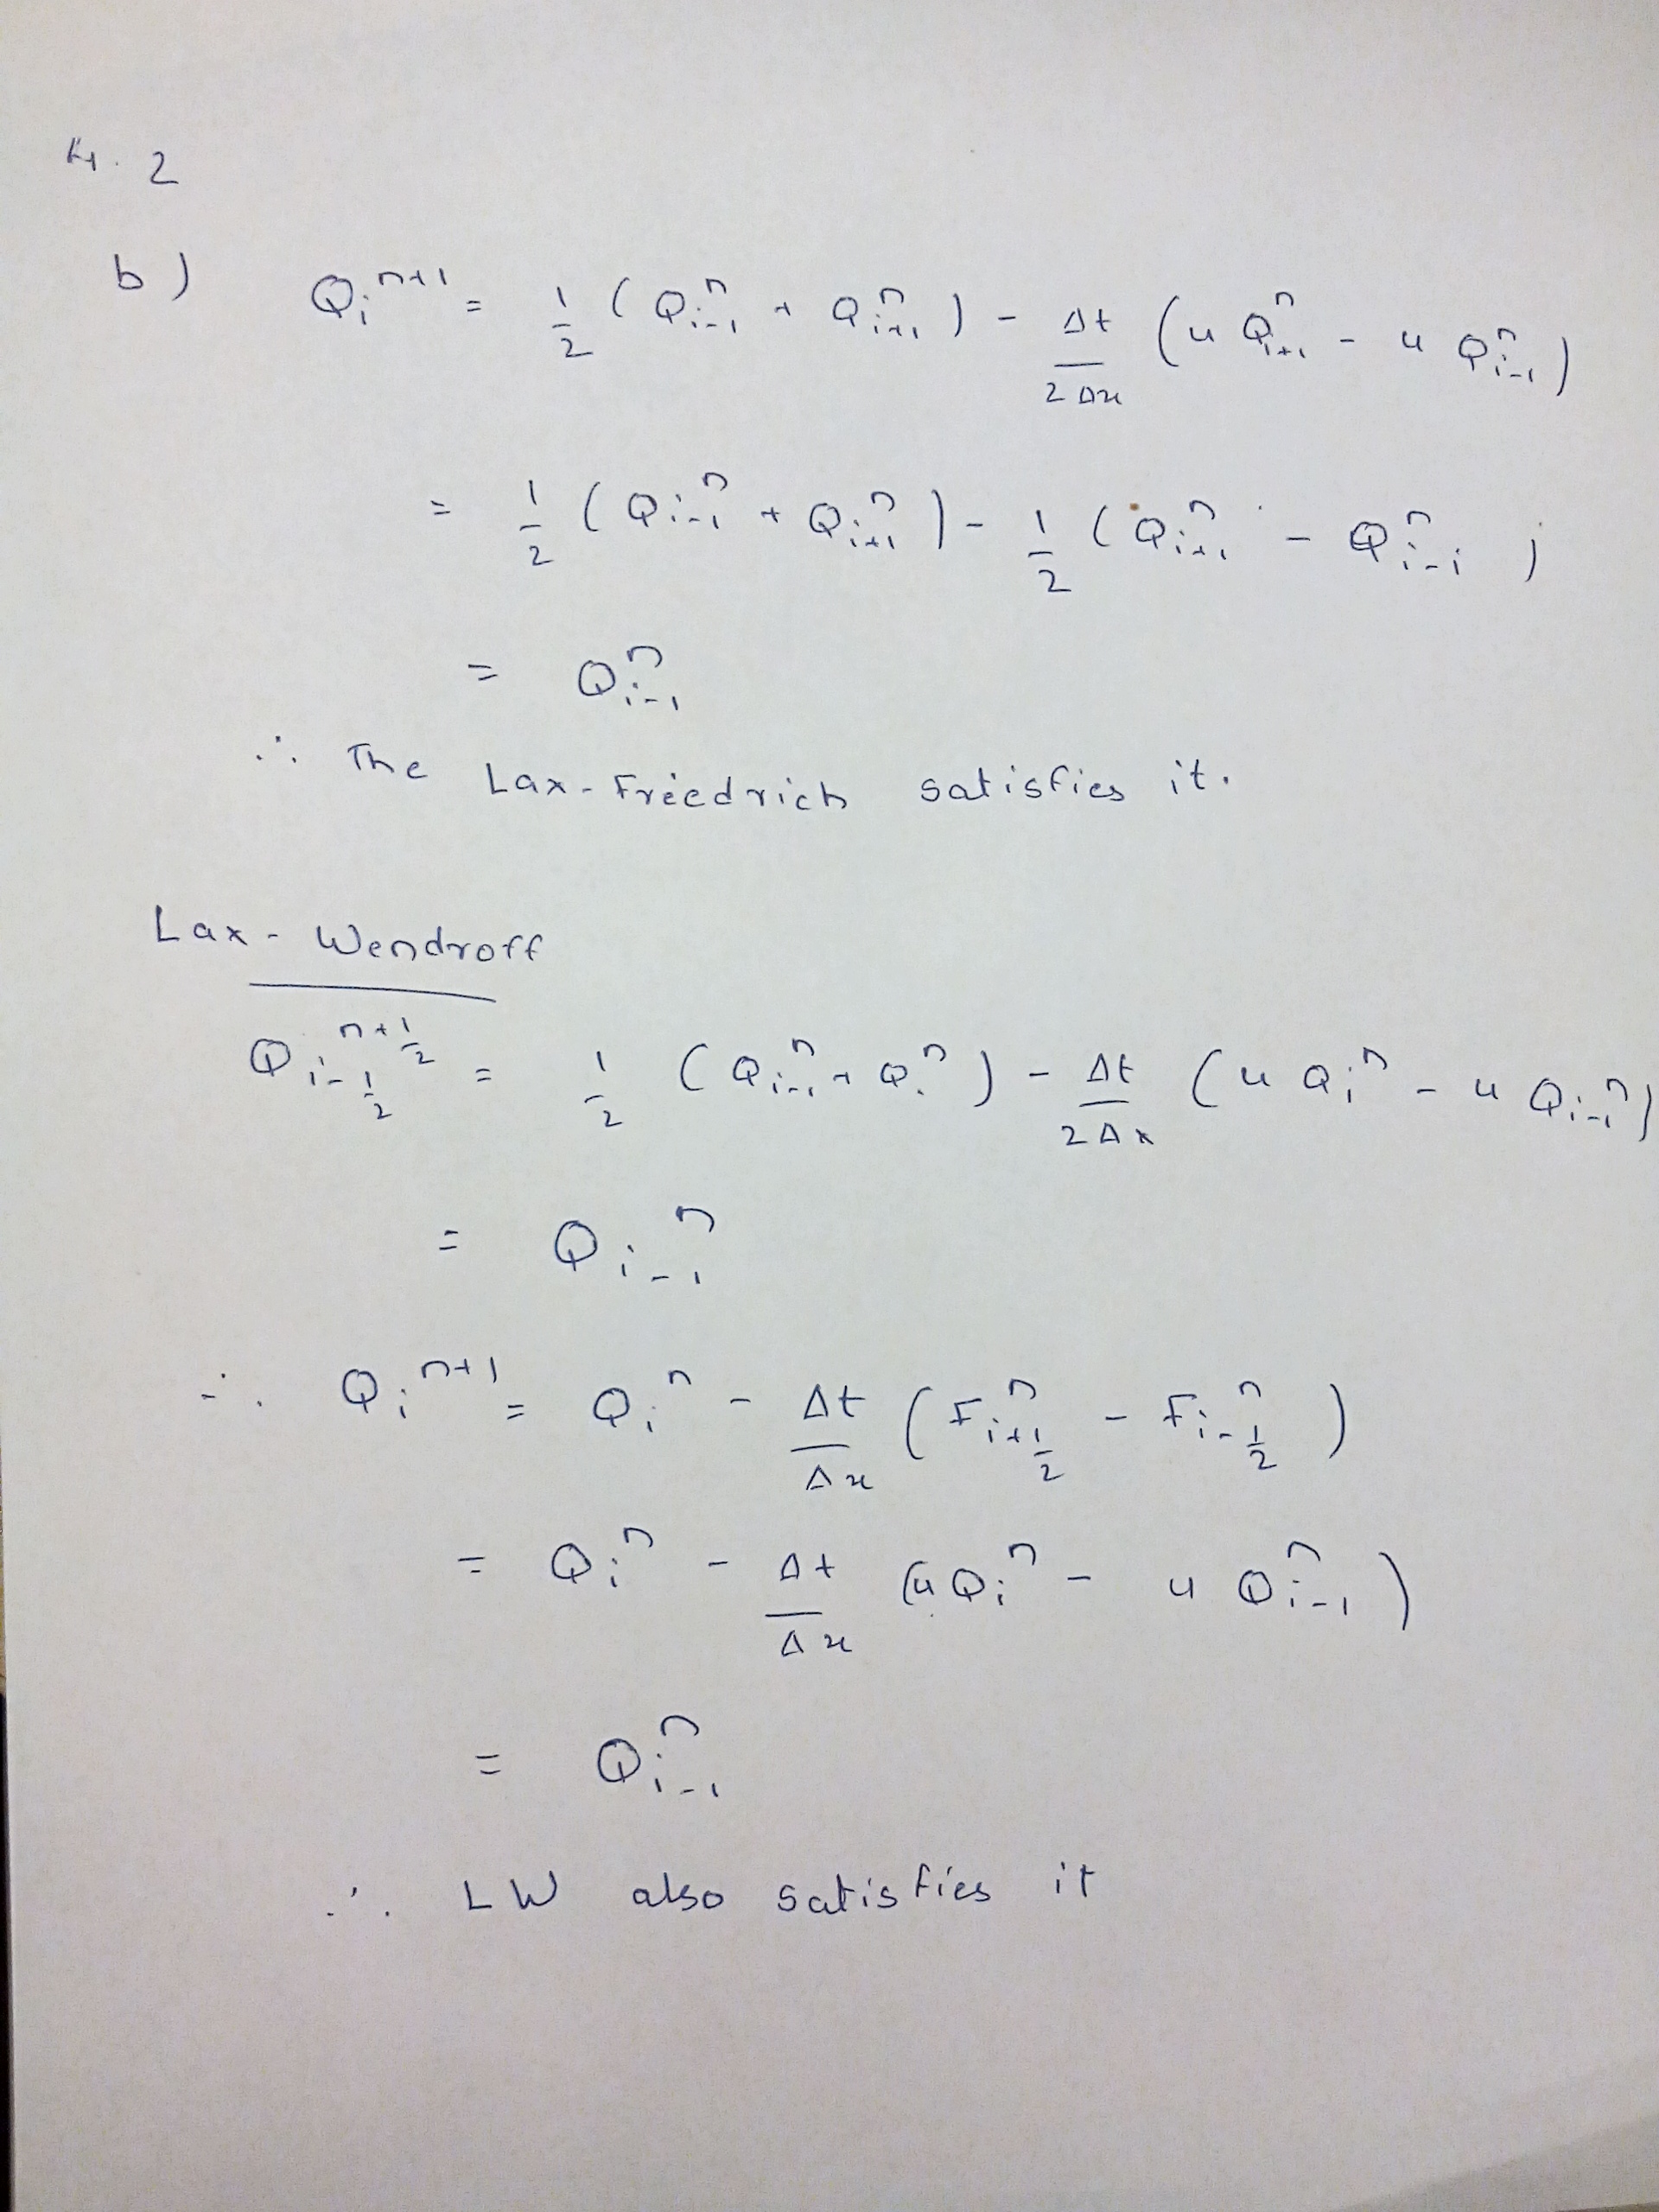 4.2
b) Q_i^{n+1} = 1/2 (Q_{i-1}^n + Q_{i+1}^n) - Δt/2Δx (u Q_{i+1}^n - u Q_{i-1}^n)
= 1/2 (Q_{i-1}^n + Q_{i+1}^n) - 1/2 (Q_{i+1}^n - Q_{i-1}^n)
= Q_{i-1}^n
∴ The Lax-Friedrich satisfies it.
Lax-Wendroff
Q_{i-1/2}^{n+1/2} = 1/2 (Q_{i-1}^n + Q_i^n) - Δt/2Δx (u Q_i^n - u Q_{i-1}^n)
= Q_{i-1}^n
∴ Q_i^{n+1} = Q_i^n - Δt/Δx (F_{i+1/2}^n - F_{i-1/2}^n)
= Q_i^n - Δt/Δx (u Q_i^n - u Q_{i-1}^n)
= Q_{i-1}^n
∴ LW also satisfies it